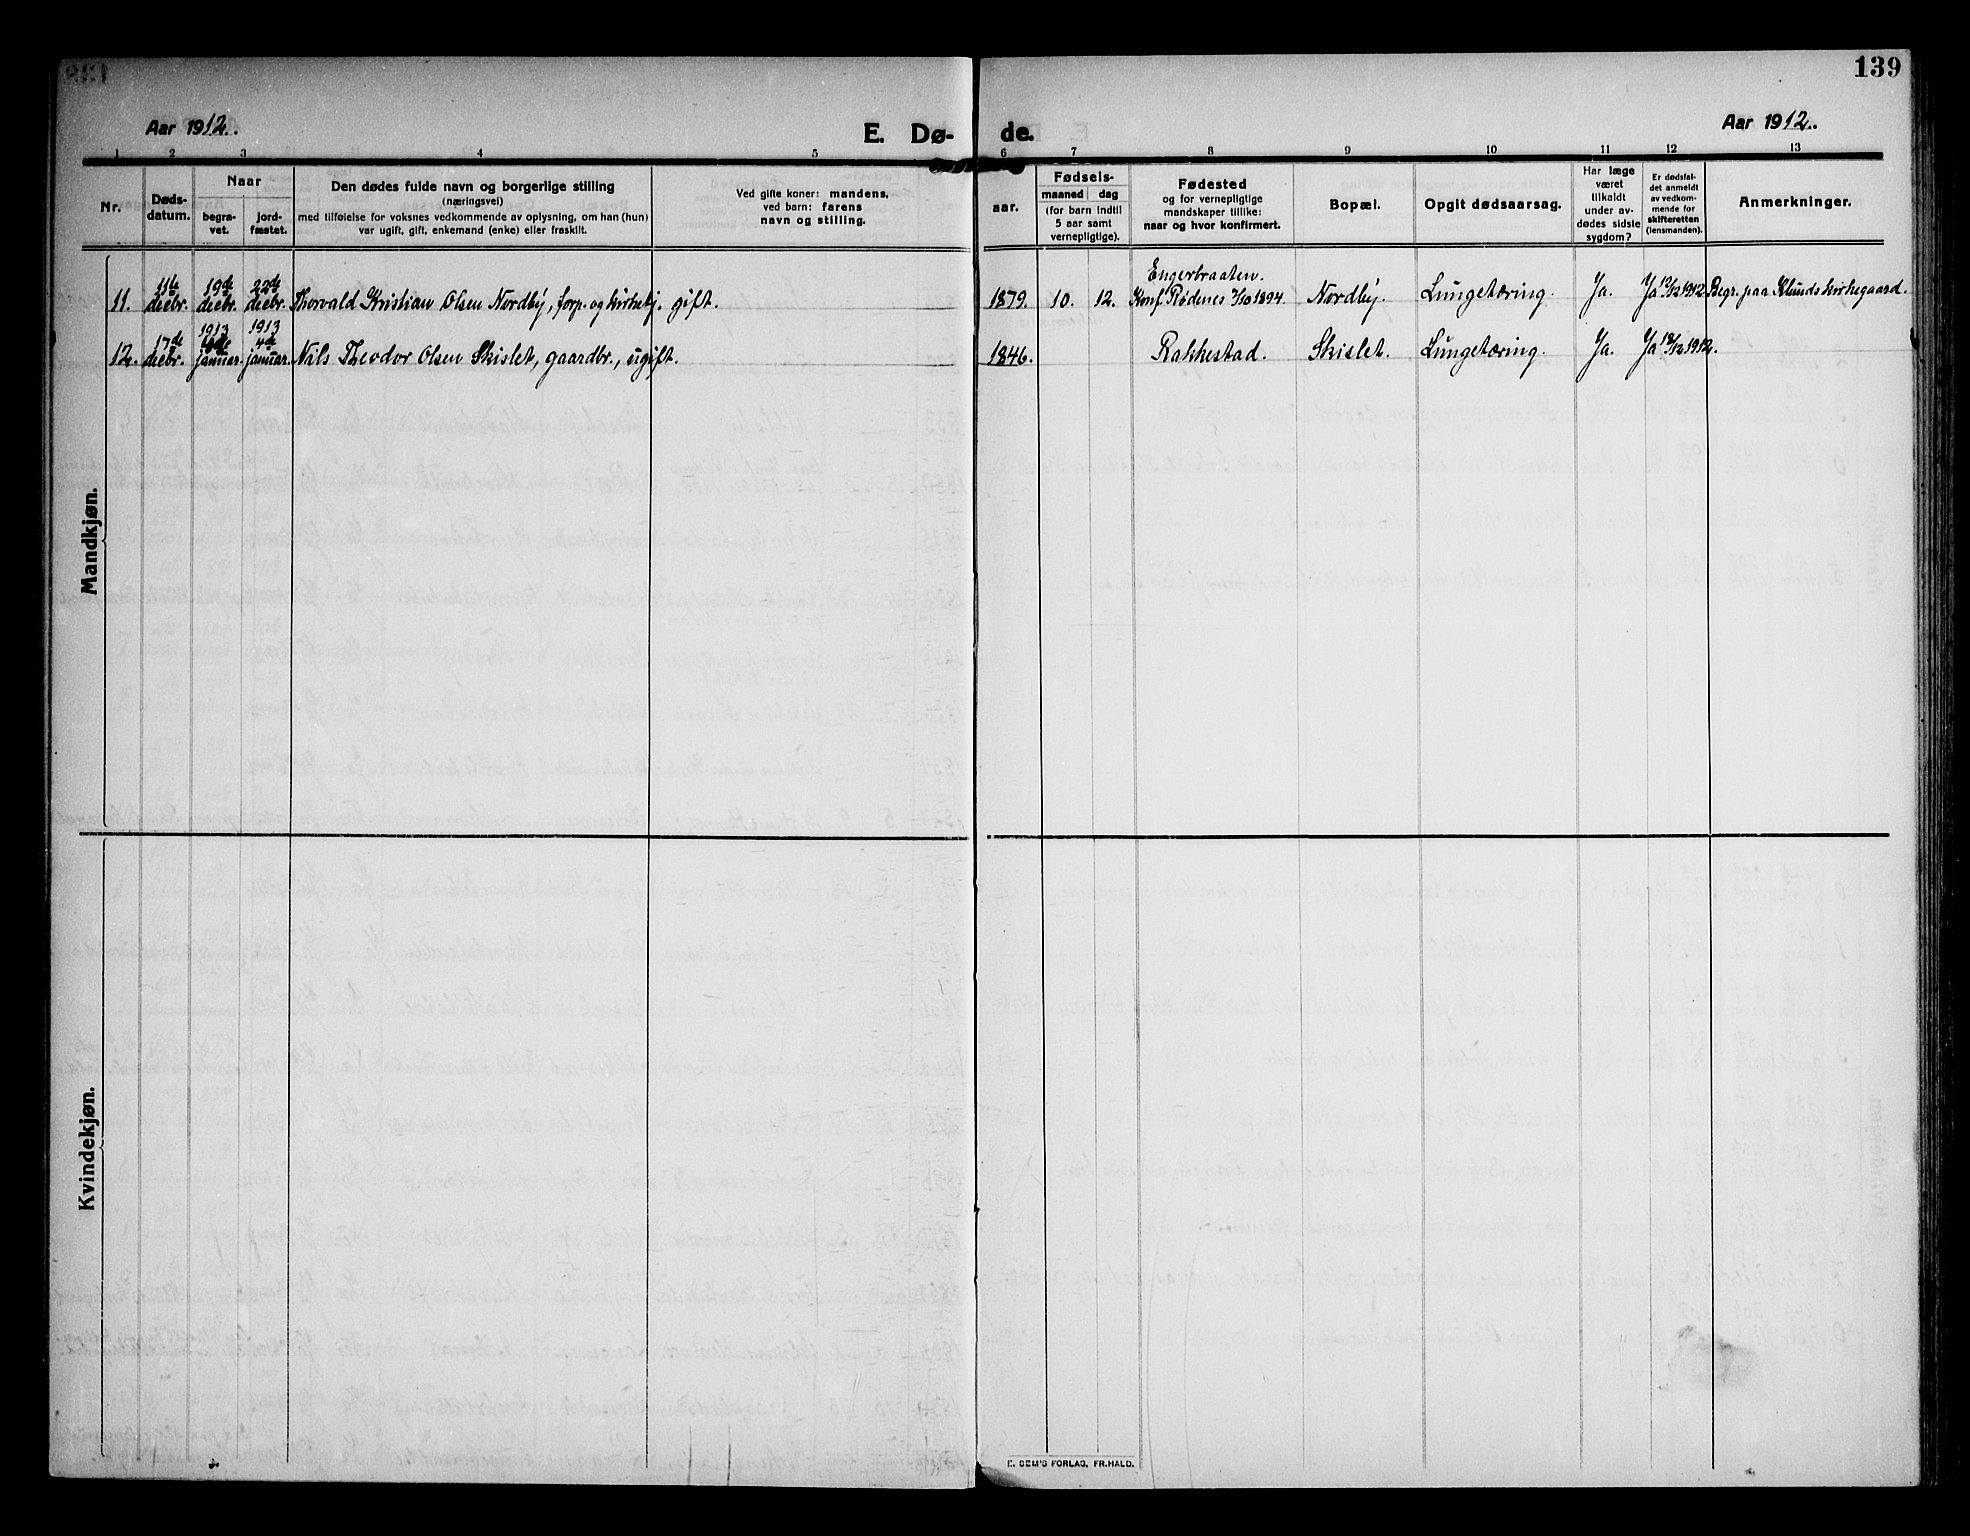 139
Aar 1912.
E. Dø-
de.
Aar 1912.
1 2 3 4 5 6 7 8 9 10 11 12 13
Nr.
Døds-
datum.
Naar
begra-
vet.
jord-
fæstet.
Den dødes fulde navn og borgerlige stilling
(næringsvei)
med tilføielse for voksnes vedkommende av oplysning, om han (hun)
var ugift, gift, enkemand (enke) eller fraskilt.
Ved gifte koner: mandens,
ved barn: farens
navn og stilling.
Fødsels-
aar.
maaned dag
(for barn indtil
5 aar samt
vernepligtige).
Fødested
og for vernepligtige
mandskaper tillike:
naar og hvor konfirmert.
Bopæl.
Opgit dødsaarsag.
Har læge
været
tilkaldt
under av-
dødes sidste
sygdom?
Er dødsfal-
det anmeldt
av vedkom-
mende for
skifteretten
(lensmanden).
Anmerkninger.
Mandkjøn.
11te 19de 22de Engerbraaten.
11. decbr. decbr. decbr. Thorvald Kristian Olsen Nordby, forp. og kirketj. gift. 1879. 10. 12. Konf. Rødenes 7/10 1894. Nordby. Lungetæring. Ja. Ja 12/12 1912. Begr. paa Klunds kirkegaard.
1913 1913
17de 4de 4de
12. decbr. januar. januar. Nils Theodor Olsen Skislet, gaardbr., ugift. 1846. Rakkestad. Skislet. Lungetæring. Ja. Ja 1912.
Kvindekjøn.
E. SEM'S FORLAG, FR.HALD.